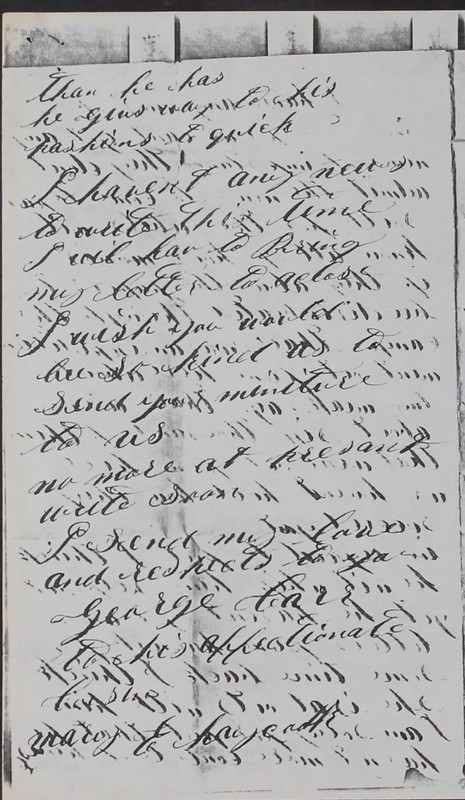 than he has
he givs way to his
pashins to quick
I haven't any news
to write this time
I will hav to Bring
my letter to a close
I wish you would
be so kind as to
send your miniture
to us
no more at presant
write soon
I send my love
and respects to you
George Carr
to his affectionate
Cousin
mary